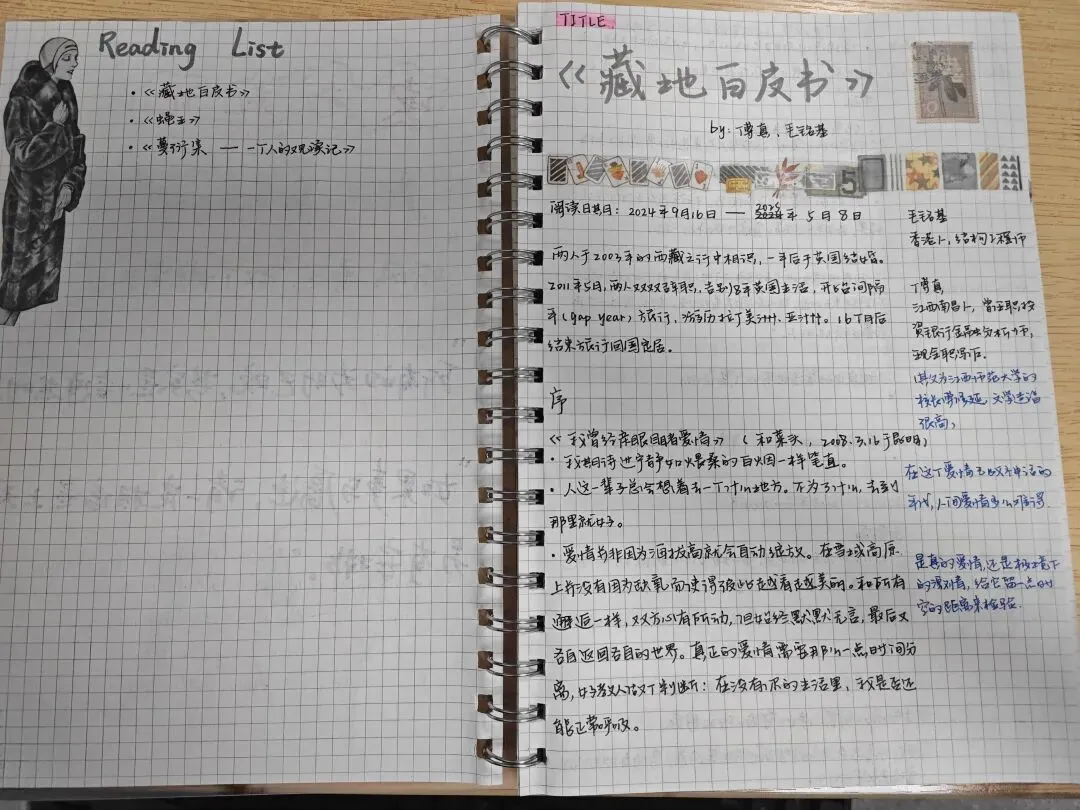 Reading List
·《藏地白皮书》
·《蝇王》
·《蔓衍集 — 一个人的观演记》
TITLE
《藏地白皮书》
by: 傅真、毛铭基
5
阅读日期: 2024年9月16日 — 2025年5月8日
两人于2003年的西藏之行中相识,一年后于英国结婚。
2011年5月,两人双双辞职,告别8年英国生活,开始间隔
年(gap year)旅行,游历拉丁美洲、亚洲。16个月后
结束旅行回国定居。
序
《我曾经亲眼目睹爱情》 (和菜头, 2008.3.16于昆明)
·我期待进宁静如煨桑的白烟一样笔直。
·人这一辈子总会想着去一个什么地方。不为了什么,去到
那里就好。
·爱情并非因为海拔高就会自动绽放。在雪域高原
上并没有因为缺氧而使得彼此越看越美丽。和所有
邂逅一样,双方心有所动,但始终默默无言,最后又
各自返回各自的世界。真正的爱情需要那么一点时间分
离,好教人做个判断:在没有你的生活里,我是否还
能正常呼吸。
毛铭基
香港人,结构工程师
傅真
江西南昌人,曾任职投
资银行金融分析师,
现全职写作。
(其父为江西师范大学的
校长傅修延,文学造诣
很高)
在这个爱情已成神话的
年代,人间爱情多么难得
是真的爱情,还是极境下
的激情,给它留一点时
空的距离来检验.